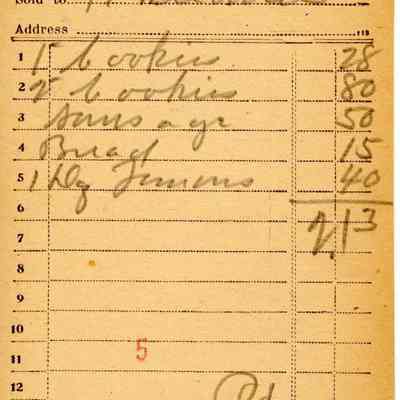 Sold to
Address 19
1 1 Cookies 28
2 2 Cookies 80
3 Sausage 50
4 Bread 15
5 1 Dz Lemons 40
6
7 2.13
8
9
10
11 5
12 Pd